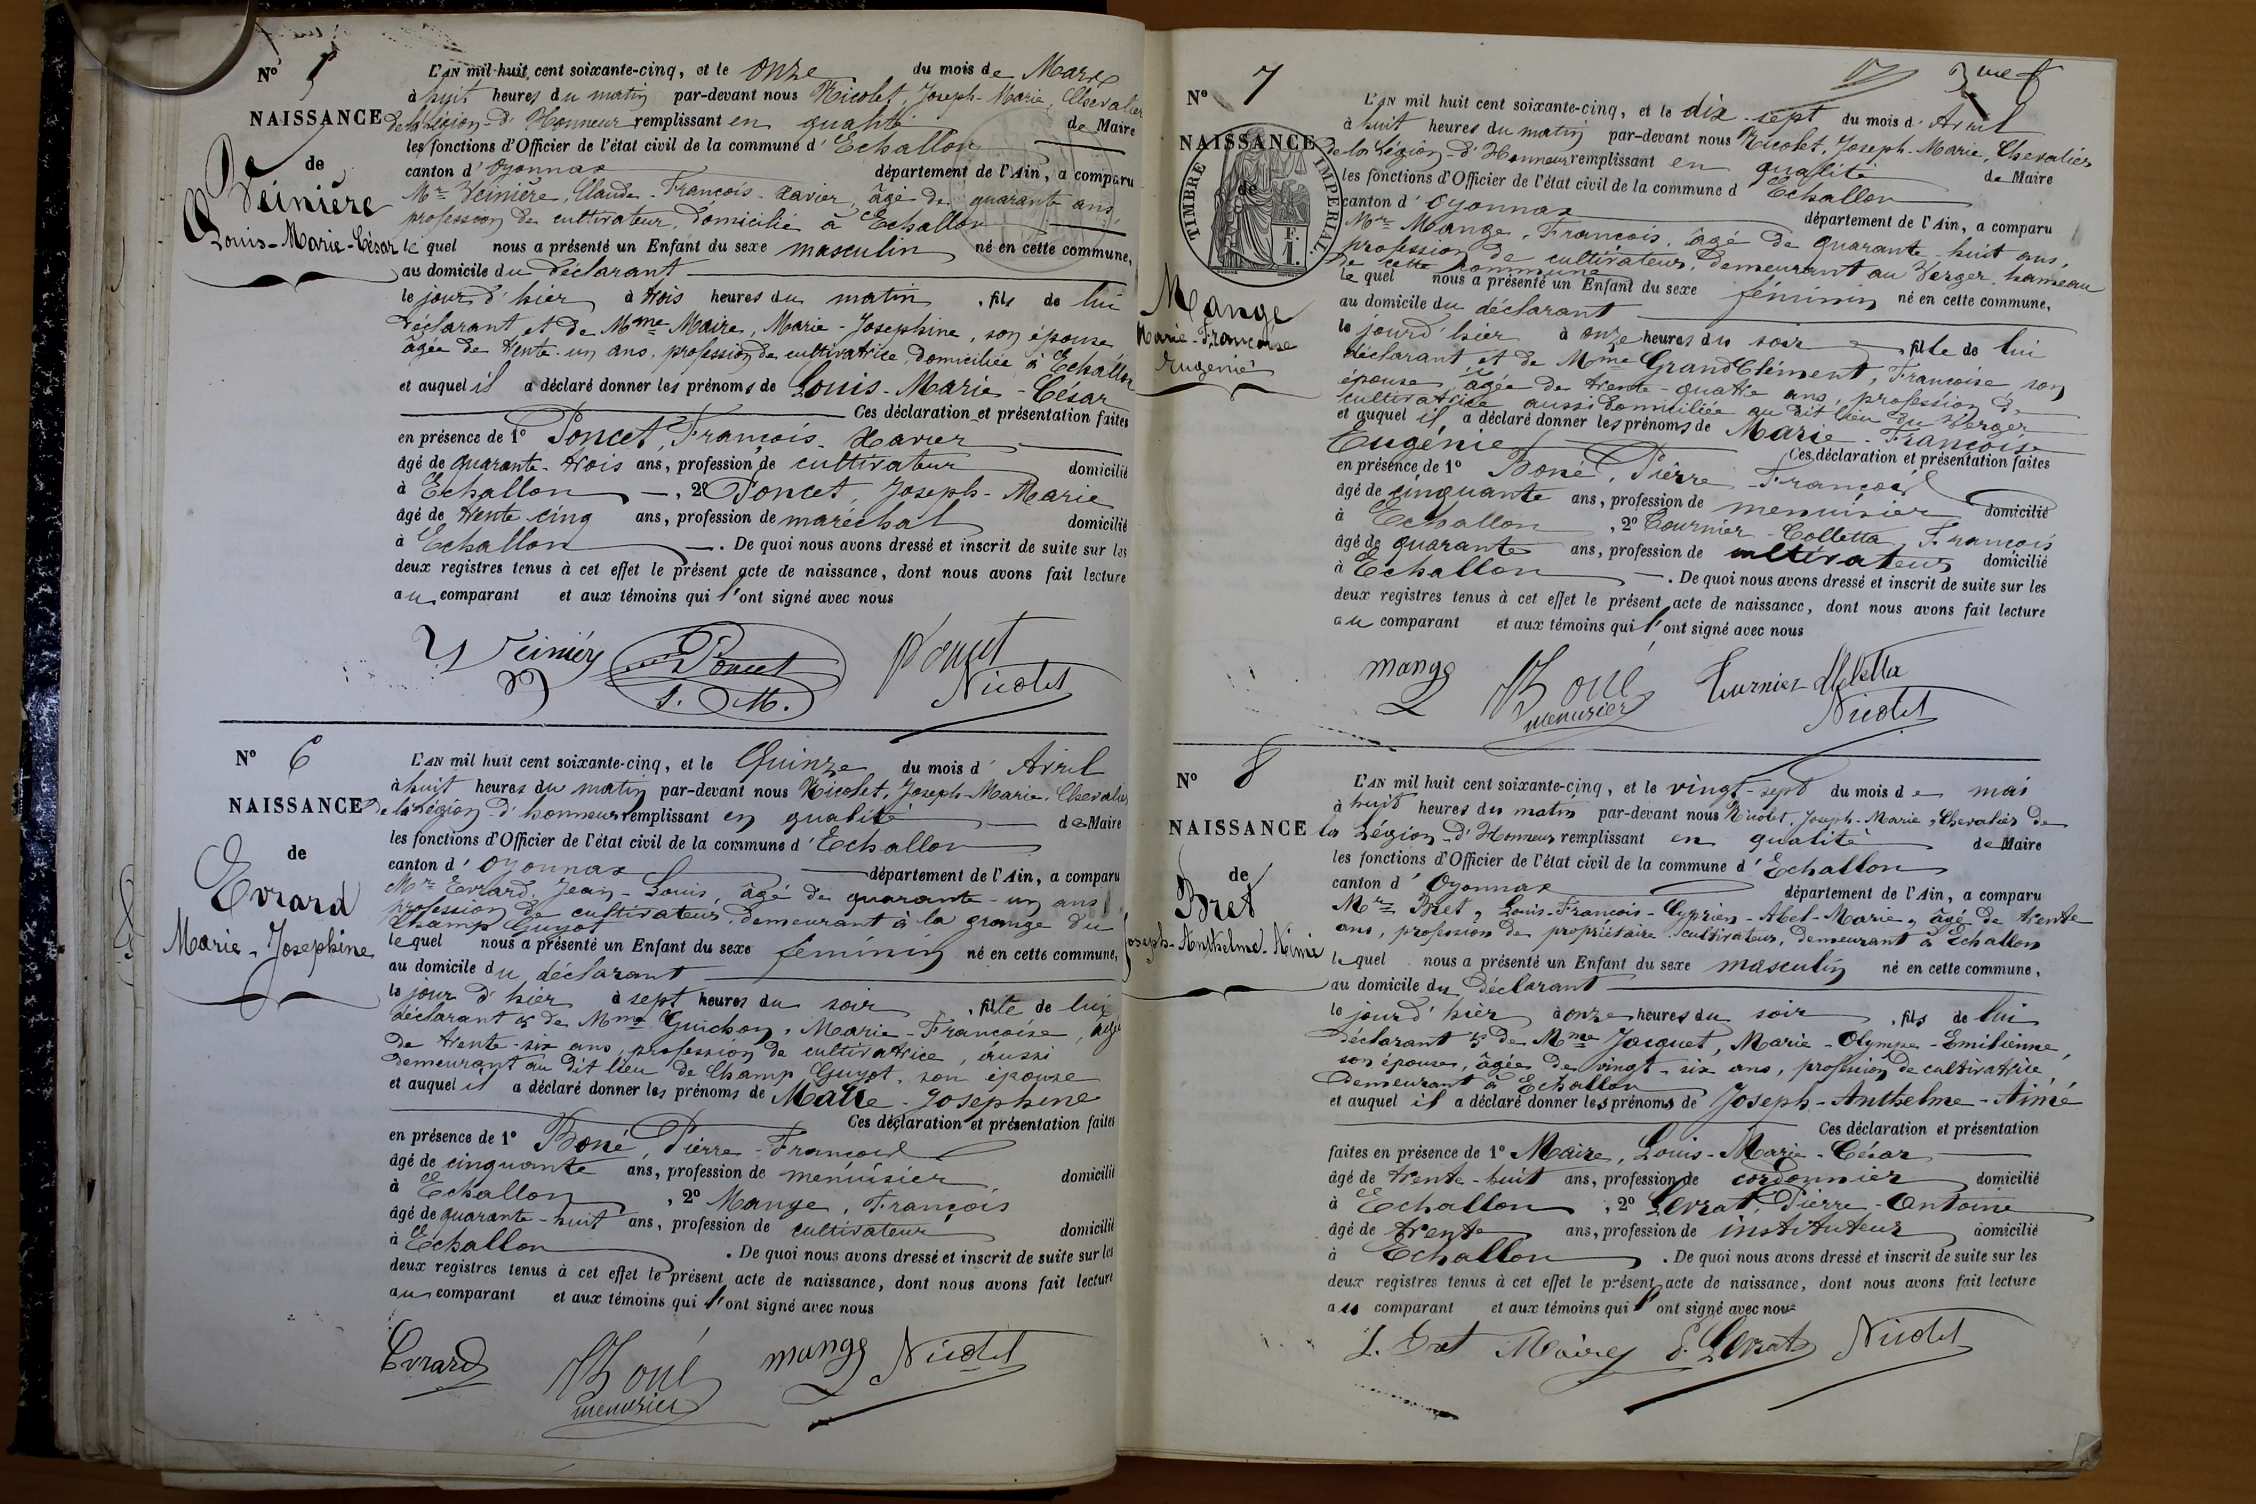 N° 5
NAISSANCE
de
Veinière
Louis-Marie-César
L'AN mil huit cent soixante-cinq, et le onze du mois de Mars
à huit heures du matin par-devant nous Nicolet, Joseph-Marie, Chevalier
de la Légion-d'Honneur remplissant en qualité de Maire
les fonctions d'Officier de l'état civil de la commune d'Echallon
canton d'Oyonnax département de l'Ain, a comparu
Mr Veinière, Claude-François-Xavier, âgé de quarante ans,
profession de cultivateur, domicilié à Echallon
le quel nous a présenté un Enfant du sexe masculin né en cette commune,
au domicile du déclarant
le jour d'hier à trois heures du matin, fils de lui
déclarant et de Mme Maire, Marie-Josephine, son épouse,
âgée de trente-un ans, profession de cultivatrice, domiciliée à Echallon
et auquel il a déclaré donner les prénoms de Louis-Marie-César
Ces déclaration et présentation faites
en présence de 1° Poncet, François-Xavier
âgé de quarante-trois ans, profession de cultivateur domicilié
à Echallon, 2° Poncet, Joseph-Marie
âgé de trente cinq ans, profession de maréchal domicilié
à Echallon. De quoi nous avons dressé et inscrit de suite sur les
deux registres tenus à cet effet le présent acte de naissance, dont nous avons fait lecture
au comparant et aux témoins qui l'ont signé avec nous
Poncet
Poncet
J. M.
Nicolet
N° 6
NAISSANCE
de
Evrard
Marie-Josephine
L'AN mil huit cent soixante-cinq, et le Quinze du mois d'Avril
à huit heures du matin par-devant nous Nicolet, Joseph-Marie, Chevalier
de la Légion-d'honneur remplissant en qualité de Maire
les fonctions d'Officier de l'état civil de la commune d'Echallon
canton d'Oyonnax département de l'Ain, a comparu
Mr Evrard, Jean-Louis, âgé de quarante-un ans,
profession de cultivateur, demeurant à la grange du
Champ Guyot
le quel nous a présenté un Enfant du sexe féminin né en cette commune,
au domicile du déclarant
le jour d'hier à sept heures du soir, fille de lui
déclarant & de Mme Guichon, Marie-Françoise, âgée
de trente-six ans, profession de cultivatrice, aussi
demeurant au dit lieu de Champ Guyot, son épouse
et auquel il a déclaré donner les prénoms de Marie-Josephine
Ces déclaration et présentation faites
en présence de 1° Boné, Pierre-François
âgé de cinquante ans, profession de menuisier, domicilié
à Echallon, 2° Mange, François
âgé de quarante-huit ans, profession de cultivateur domicilié
à Echallon. De quoi nous avons dressé et inscrit de suite sur les
deux registres tenus à cet effet le présent acte de naissance, dont nous avons fait lecture
au comparant et aux témoins qui l'ont signé avec nous
Evrard Boné mange Nicolet
menuisier
N° 7
NAISSANCE
de
TIMBRE IMPERIAL
Mange
Marie-Françoise
Eugénie
L'AN mil huit cent soixante-cinq, et le dix-sept du mois d'Avril
à huit heures du matin par-devant nous Nicolet, Joseph-Marie, Chevalier
de la Légion-d'Honneur remplissant en qualité de Maire
les fonctions d'Officier de l'état civil de la commune d Echallon
canton d'Oyonnax département de l'Ain, a comparu
Mr Mange, François, âgé de quarante-huit ans,
profession de cultivateur, demeurant au Verger, hameau
de cette commune
le quel nous a présenté un Enfant du sexe féminin né en cette commune,
au domicile du déclarant
le jour d'hier à onze heures du soir, fille de lui
déclarant et de Mme GrandClément, Françoise, son
épouse, âgée de trente-quatre ans, profession de
cultivatrice aussi domiciliée au dit lieu du Verger
et auquel il a déclaré donner les prénoms de Marie-Françoise
Eugénie
Ces déclaration et présentation faites
en présence de 1° Boné, Pierre-François
âgé de cinquante ans, profession de menuisier domicilié
à Echallon, 2° Tournier-Colletta, François
âgé de quarante ans, profession de cultivateur domicilié
à Echallon. De quoi nous avons dressé et inscrit de suite sur les
deux registres tenus à cet effet le présent acte de naissance, dont nous avons fait lecture
au comparant et aux témoins qui l'ont signé avec nous
mange Boné Tournier-Colletta
menuisier Nicolet
N° 8
NAISSANCE
de
Bret
Joseph-Anthelme-Aimé
L'AN mil huit cent soixante-cinq, et le vingt-sept du mois de mai
à huit heures du matin par-devant nous Nicolet, Joseph-Marie, Chevalier de
la Légion-d'Honneur remplissant en qualité de Maire
les fonctions d'Officier de l'état civil de la commune d'Echallon
canton d'Oyonnax département de l'Ain, a comparu
Mr Bret, Louis-François-Cyprien-Abel-Marie, âgé de trente
ans, profession de propriétaire cultivateur, demeurant à Echallon
le quel nous a présenté un Enfant du sexe masculin né en cette commune,
au domicile du déclarant
le jour d'hier à onze heures du soir, fils de lui
déclarant & de Mme Jacquet, Marie-Olympe-Emilienne,
son épouse, âgée de vingt-six ans, profession de cultivatrice,
demeurant à Echallon
et auquel il a déclaré donner les prénoms de Joseph-Anthelme-Aimé
Ces déclaration et présentation
faites en présence de 1° Maire, Louis-Marie-César
âgé de trente-huit ans, profession de cordonnier domicilié
à Echallon, 2° Levrat, Pierre-Antoine
âgé de trente ans, profession de instituteur domicilié
à Echallon. De quoi nous avons dressé et inscrit de suite sur les
deux registres tenus à cet effet le présent acte de naissance, dont nous avons fait lecture
au comparant et aux témoins qui l'ont signé avec nous
L. Bret Maire P. Levrat Nicolet